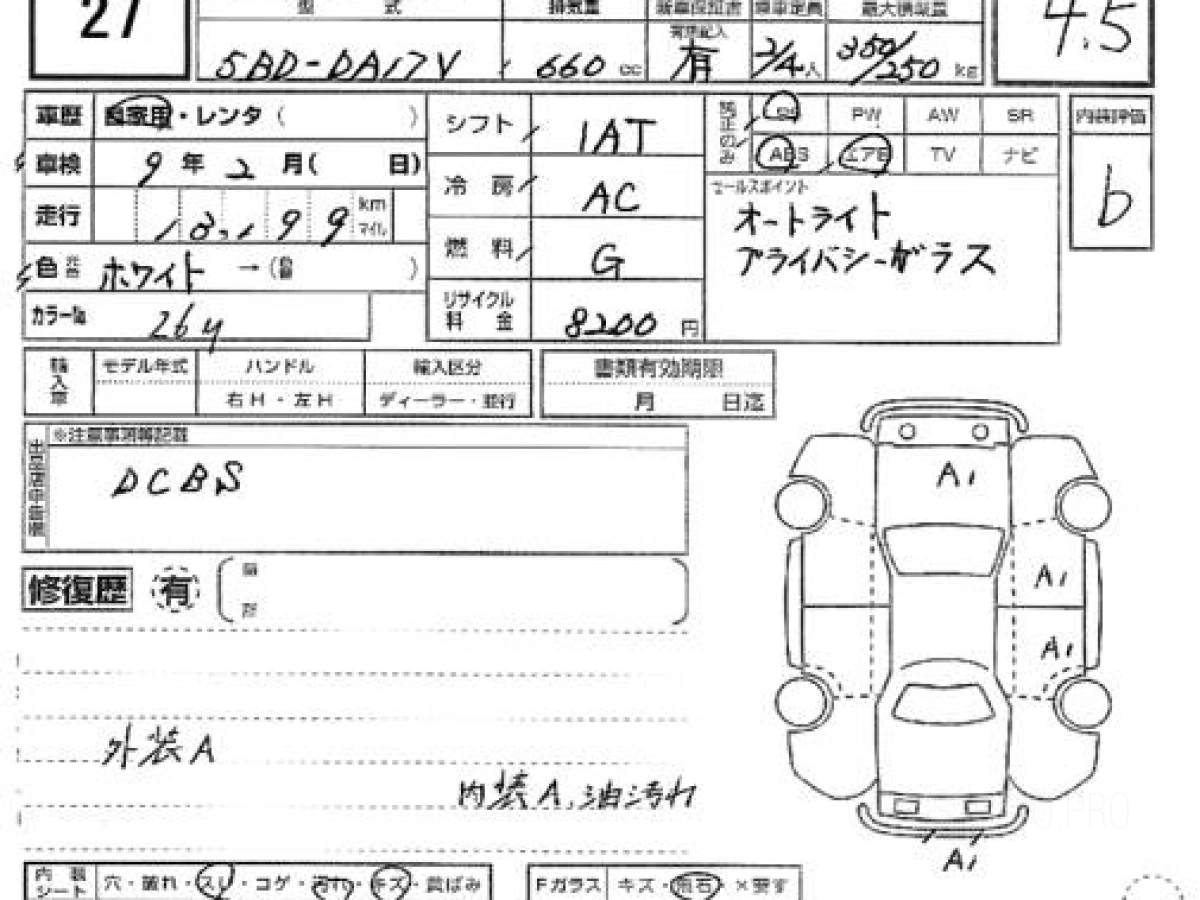 27
型 式 排気量 新車保証書 乗車定員 最大積載量
有無記入
5BD-DA17V 660 cc 有 2/4人 350/250 kg
4.5
車歴 自家用・レンタ( )
車検 9年2月( 日)
走行 18,199 km マイル
色 元色 ホワイト →( )
カラーNo. 26U
シフト IAT
冷 房 AC
燃 料 G
リサイクル料 金 8200 円
純正のみ SR PW AW SR
ABS エアB TV ナビ
セールスポイント
オートライト
プライバシーガラス
内装評価
b
輸入車 モデル年式 ハンドル 輸入区分
右H・左H ディーラー・並行
書類有効期限
月 日迄
出品店申告欄
※注意事項等記載
DCBS
修復歴 有
A1
A1
A1
外装A
内装A.油汚れ
A1
内装シート 穴・破れ・スレ・コゲ・汚れ・キズ・黄ばみ
Fガラス キズ・飛石・×要す